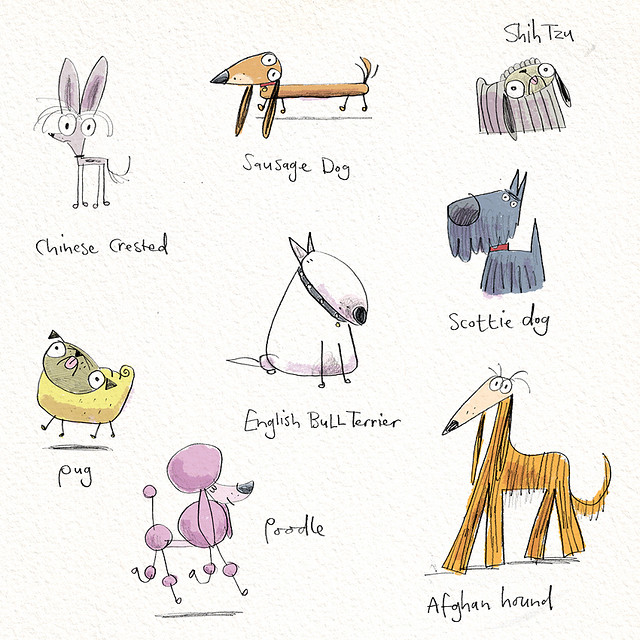 Shih Tzu
Sausage Dog
Chinese Crested
Scottie dog
English Bull Terrier
pug
poodle
Afghan hound